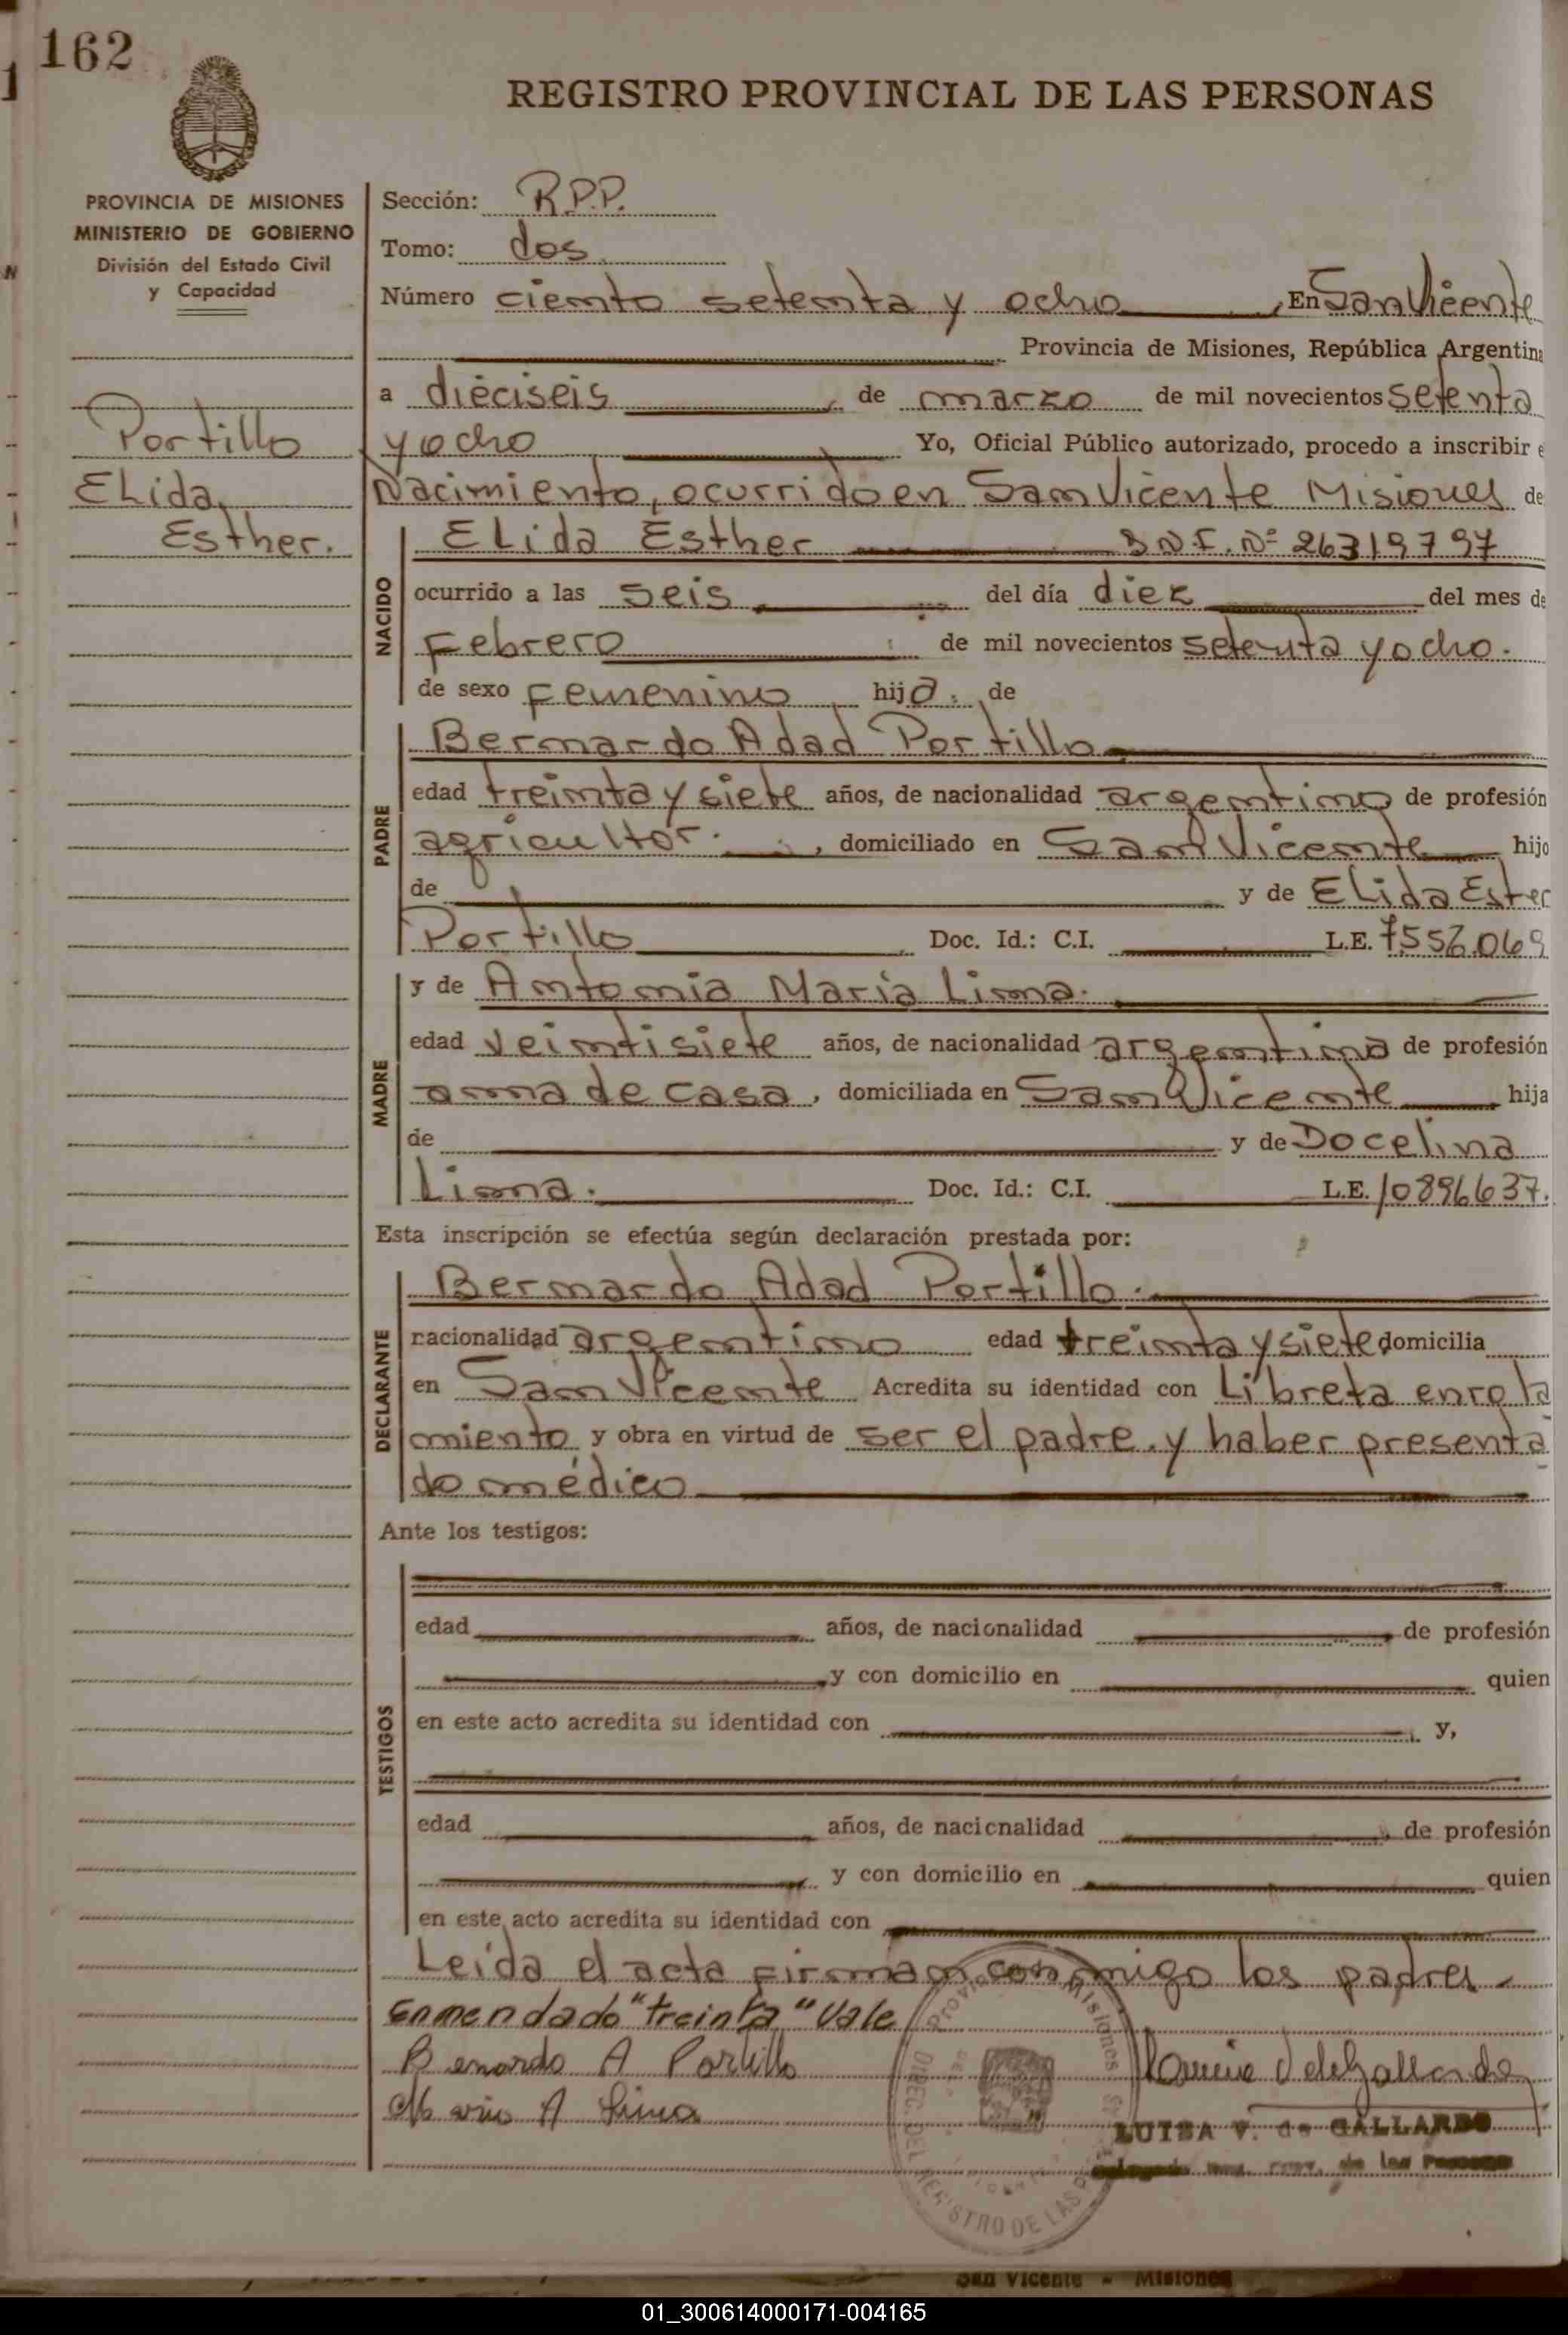 162
REGISTRO PROVINCIAL DE LAS PERSONAS
PROVINCIA DE MISIONES
MINISTERIO DE GOBIERNO
División del Estado Civil
y Capacidad
Portillo
Elida
Esther.
Sección: R.P.P.
Tomo: dos
Número ciento setenta y ocho, En San Vicente
Provincia de Misiones, República Argentina
a dieciseis, de marzo de mil novecientos setenta
y ocho Yo, Oficial Público autorizado, procedo a inscribir e
Nacimiento, ocurrido en San Vicente Misiones de
NACIDO
Elida Esther D.N.I. Nº 26319797
ocurrido a las seis del día diez del mes de
Febrero de mil novecientos setenta y ocho.
de sexo Femenino hija. de
PADRE
Bernardo Adad Portillo
edad treinta y siete años, de nacionalidad argentino de profesión
agricultor., domiciliado en San Vicente hijo
de y de Elida Ester
Portillo Doc. Id.: C.I. L.E. 7.556.069
MADRE
y de Antonia Maria Lima.
edad veintisiete años, de nacionalidad argentina de profesión
ama de casa, domiciliada en San Vicente hija
de y de Docelina
Lima. Doc. Id.: C.I. L.E. 10896637.
Esta inscripción se efectúa según declaración prestada por:
DECLARANTE
Bernardo Adad Portillo.
nacionalidad argentino edad treinta y siete domicilia
en San Vicente Acredita su identidad con Libreta enrola
miento y obra en virtud de ser el padre. y haber presenta
do médico
Ante los testigos:
TESTIGOS
edad años, de nacionalidad de profesión
y con domicilio en quien
en este acto acredita su identidad con y,
edad años, de nacicnalidad de profesión
y con domicilio en quien
en este acto acredita su identidad con
Leida el acta firman conmigo los padres.
Enmendado "treinta" Vale
Benardo A Portillo
Maria A Lima
Provincia Misiones
DIREC. DEL REGISTRO DE LAS
LUISA V. de GALLARDO
de las Personas
San Vicente - Misiones
01_300614000171-004165